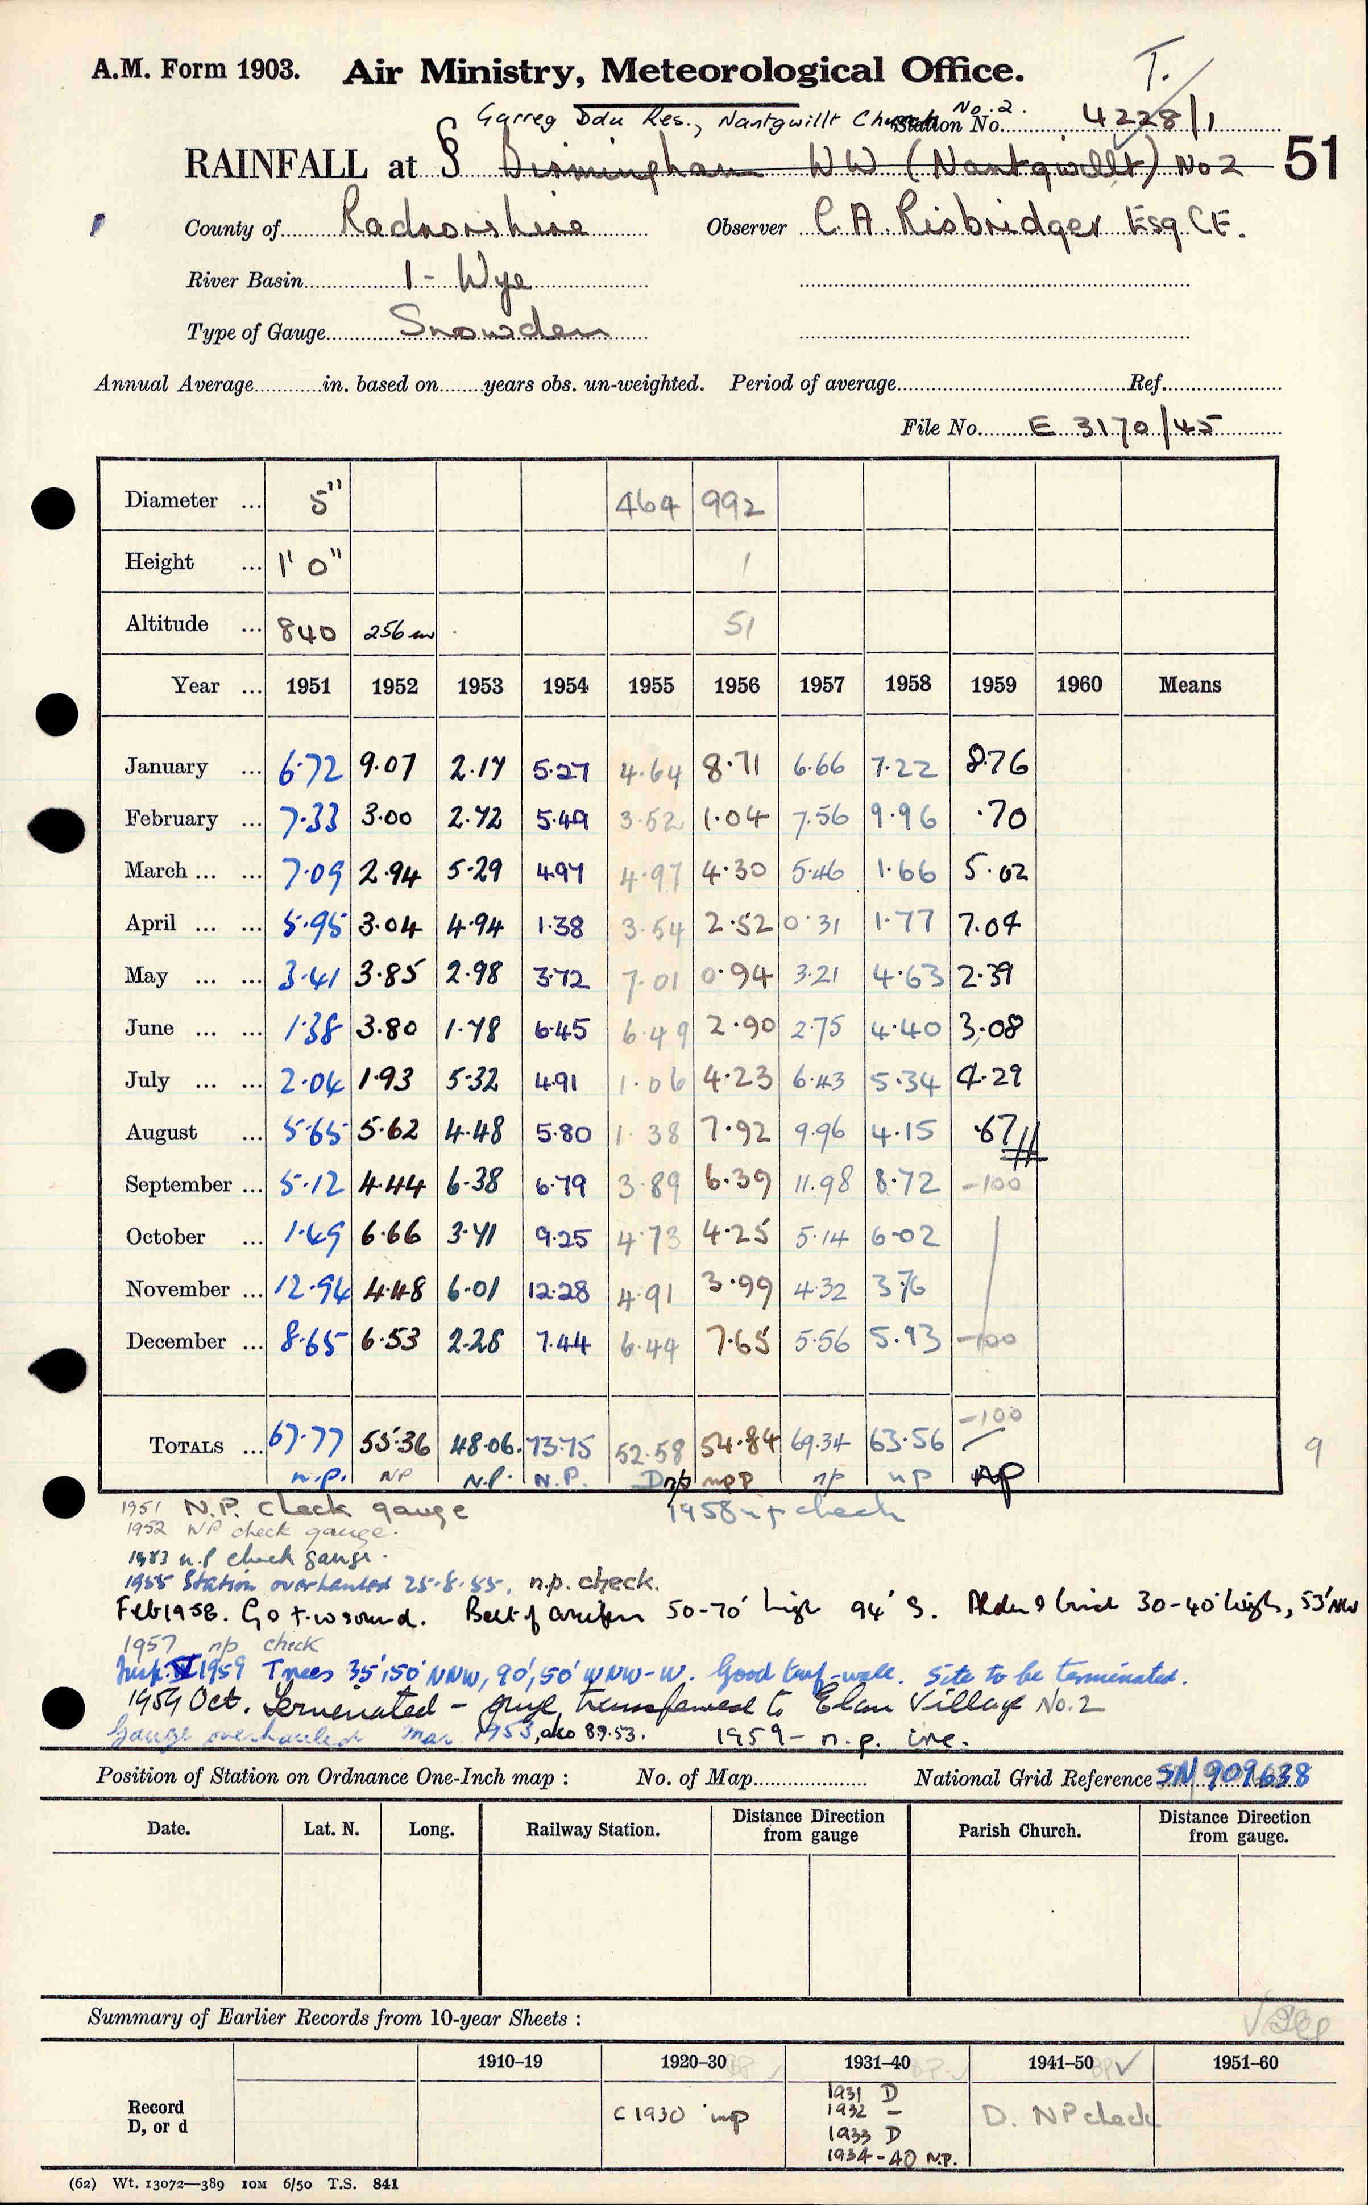 A.M. Form 1903. Air Ministry, Meteorological Office.
T.
Garreg Ddu Res., Nantgwillt Church No. 2. Station No. 4228/1
RAINFALL at § Birmingham WW (Nantgwillt) No 2 51
County of Radnorshire Observer C. A. Risbridger Esq C.E.
River Basin 1 - Wye
Type of Gauge Snowdon
Annual Average in. based on years obs. un-weighted. Period of average Ref.
File No. E 3170/45
Diameter ... 5" 464 992
Height ... 1' 0" 1
Altitude ... 840 256 m 51
Year ... 1951 1952 1953 1954 1955 1956 1957 1958 1959 1960 Means
January ... 6.72 9.07 2.17 5.27 4.64 8.71 6.66 7.22 8.76
February ... 7.33 3.00 2.42 5.49 3.52 1.04 7.56 9.96 .70
March ... ... 7.09 2.94 5.29 4.97 4.97 4.30 5.46 1.66 5.02
April ... ... 5.95 3.04 4.94 1.38 3.54 2.52 0.31 1.77 7.04
May ... ... 3.41 3.85 2.98 3.72 7.01 0.94 3.21 4.63 2.39
June ... ... 1.38 3.80 1.48 6.45 6.49 2.90 2.75 4.40 3.08
July ... ... 2.04 1.93 5.32 4.91 1.06 4.23 6.43 5.34 4.29
August ... 5.65 5.62 4.48 5.80 1.38 7.92 9.96 4.15 .67
September ... 5.12 4.44 6.38 6.79 3.89 6.39 11.98 8.72 -100
October ... 1.49 6.66 3.41 9.25 4.73 4.25 5.14 6.02
November ... 12.94 4.48 6.01 12.28 4.91 3.99 4.32 3.76
December ... 8.65 6.53 2.28 7.44 6.44 7.65 5.56 5.93 -100
-100
TOTALS ... 67.77 55.36 48.06. 73.75 52.58 54.84 69.34 63.56 9
n.p. NP N.P. N.P. D np np p np np NP
1951 N.P. check gauge 1958 n p check
1952 NP check gauge.
1953 n.p check gauge.
1955 Station overhauled 25.8.55. n.p. check.
Feb 1958. Go t.w sound. Belt of conifers 50-70' high 94' S. Alder & birch 30-40' high, 53' NW
1957 np check
Insp. 1959 Trees 35', 50' NNW, 90', 50' WNW-W. Good turf-wall. Site to be terminated.
1959 Oct. Terminated - gauge transferred to Elan Village No. 2
Gauge overhauled Mar 1953, also 8.9.53. 1959 - n.p. inc.
Position of Station on Ordnance One-Inch map : No. of Map National Grid Reference SN 909638
Date. Lat. N. Long. Railway Station. Distance Direction from gauge Parish Church. Distance Direction from gauge.
Summary of Earlier Records from 10-year Sheets :
1910–19 1920–30 1931–40 1941–50 1951–60
Record D, or d
C 1930 np
1931 D
1932 -
1933 D
1934-40 N.P.
D. NP check
(62) Wt. 13072—389 10M 6/50 T.S. 841